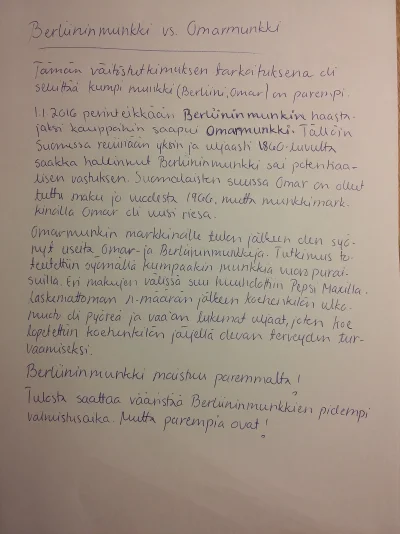 Berliininmunkki vs. Omarmunkki
Tämän väitöstutkimuksen tarkoituksena oli
selvittää kumpi munkki (Berliini, Omar) on parempi.
1.1.2016 perinteikkään Berliininmunkin haasta-
jaksi kauppoihin saapui Omarmunkki. Tällöin
Suomessa reviiriään yksin ja ylpeästi 1860-luvulta
saakka hallinnut Berliininmunkki sai potentiaa-
lisen vastuksen. Suomalaisten suussa Omar on ollut
tuttu maku jo vuodesta 1966, mutta munkkimark-
kinoilla Omar oli uusi riesa.
Omarmunkin markkinoille tulon jälkeen olen syö-
nyt useita Omar- ja Berliininmunkkeja. Tutkimus to-
teutettiin syömällä kumpaakin munkkia vuoropurai-
suilla. Eri makujen välissä suu huuhdottiin Pepsi Maxilla.
Laskemattoman n-määrän jälkeen koehenkilön ulko-
muoto oli pyöreä ja vaa'an lukemat ylpeät, joten koe
lopetettiin koehenkilön järjellä olevan terveyden tur-
vaamiseksi.
Berliininmunkki maistuu paremmalta!
Tulosta saattaa vääristää Berliininmunkkien pidempi
valmistusaika. Mutta parempia ovat!